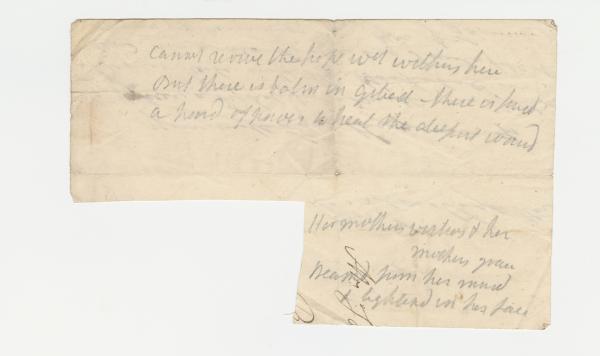 Cannot revive the hope wct withers here
But there is balm in Gilead - there is found
a hand of power to heal the deepest wound
Her mothers virtues & her
mothers grace
Beamd from her mind
& lightend in her face